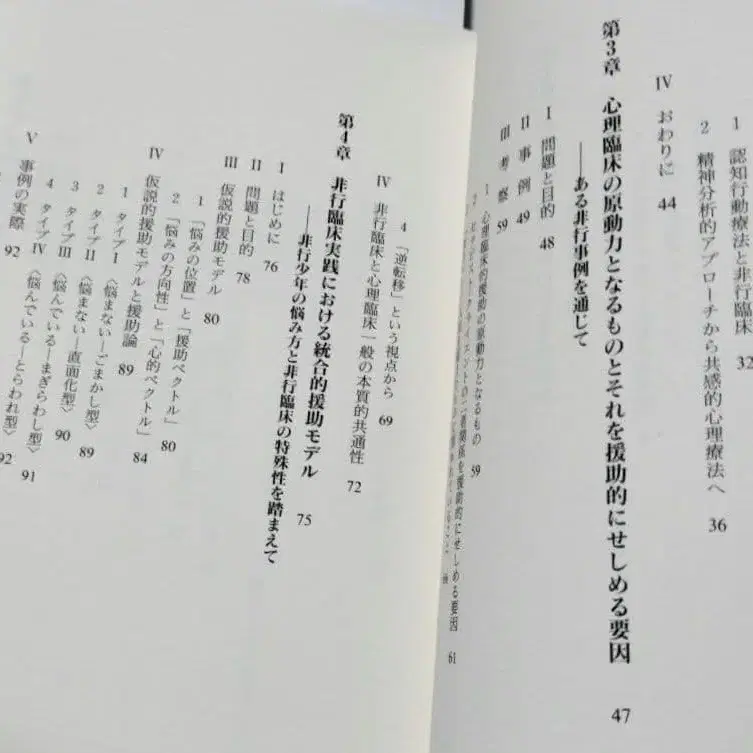 1 認知行動療法と非行臨床 32
2 精神分析的アプローチから共感的心理療法へ 36
IV おわりに 44
第3章 心理臨床の原動力となるものとそれを援助的にせしめる要因
――ある非行事例を通じて 47
I 問題と目的 48
II 事例 49
III 考察 59
1 心理臨床的援助の原動力となるもの 59
2 セラピスト・クライエントの二者関係を援助的にせしめる要因 61
4 「逆転移」という視点から 69
IV 非行臨床と心理臨床一般の本質的共通性 72
第4章 非行臨床実践における統合的援助モデル
――非行少年の悩み方と非行臨床の特殊性を踏まえて 75
I はじめに 76
II 問題と目的 78
III 仮説的援助モデル 80
1 「悩みの位置」と「援助ベクトル」 80
2 「悩みの方向性」と「心的ベクトル」 84
IV 仮説的援助モデルと援助論 89
1 タイプI 〈悩まない―ごまかし型〉 89
2 タイプII 〈悩まない―直面化型〉 90
3 タイプIII 〈悩んでいる―まぎらわし型〉 91
4 タイプIV 〈悩んでいる―とらわれ型〉 92
V 事例の実際 92